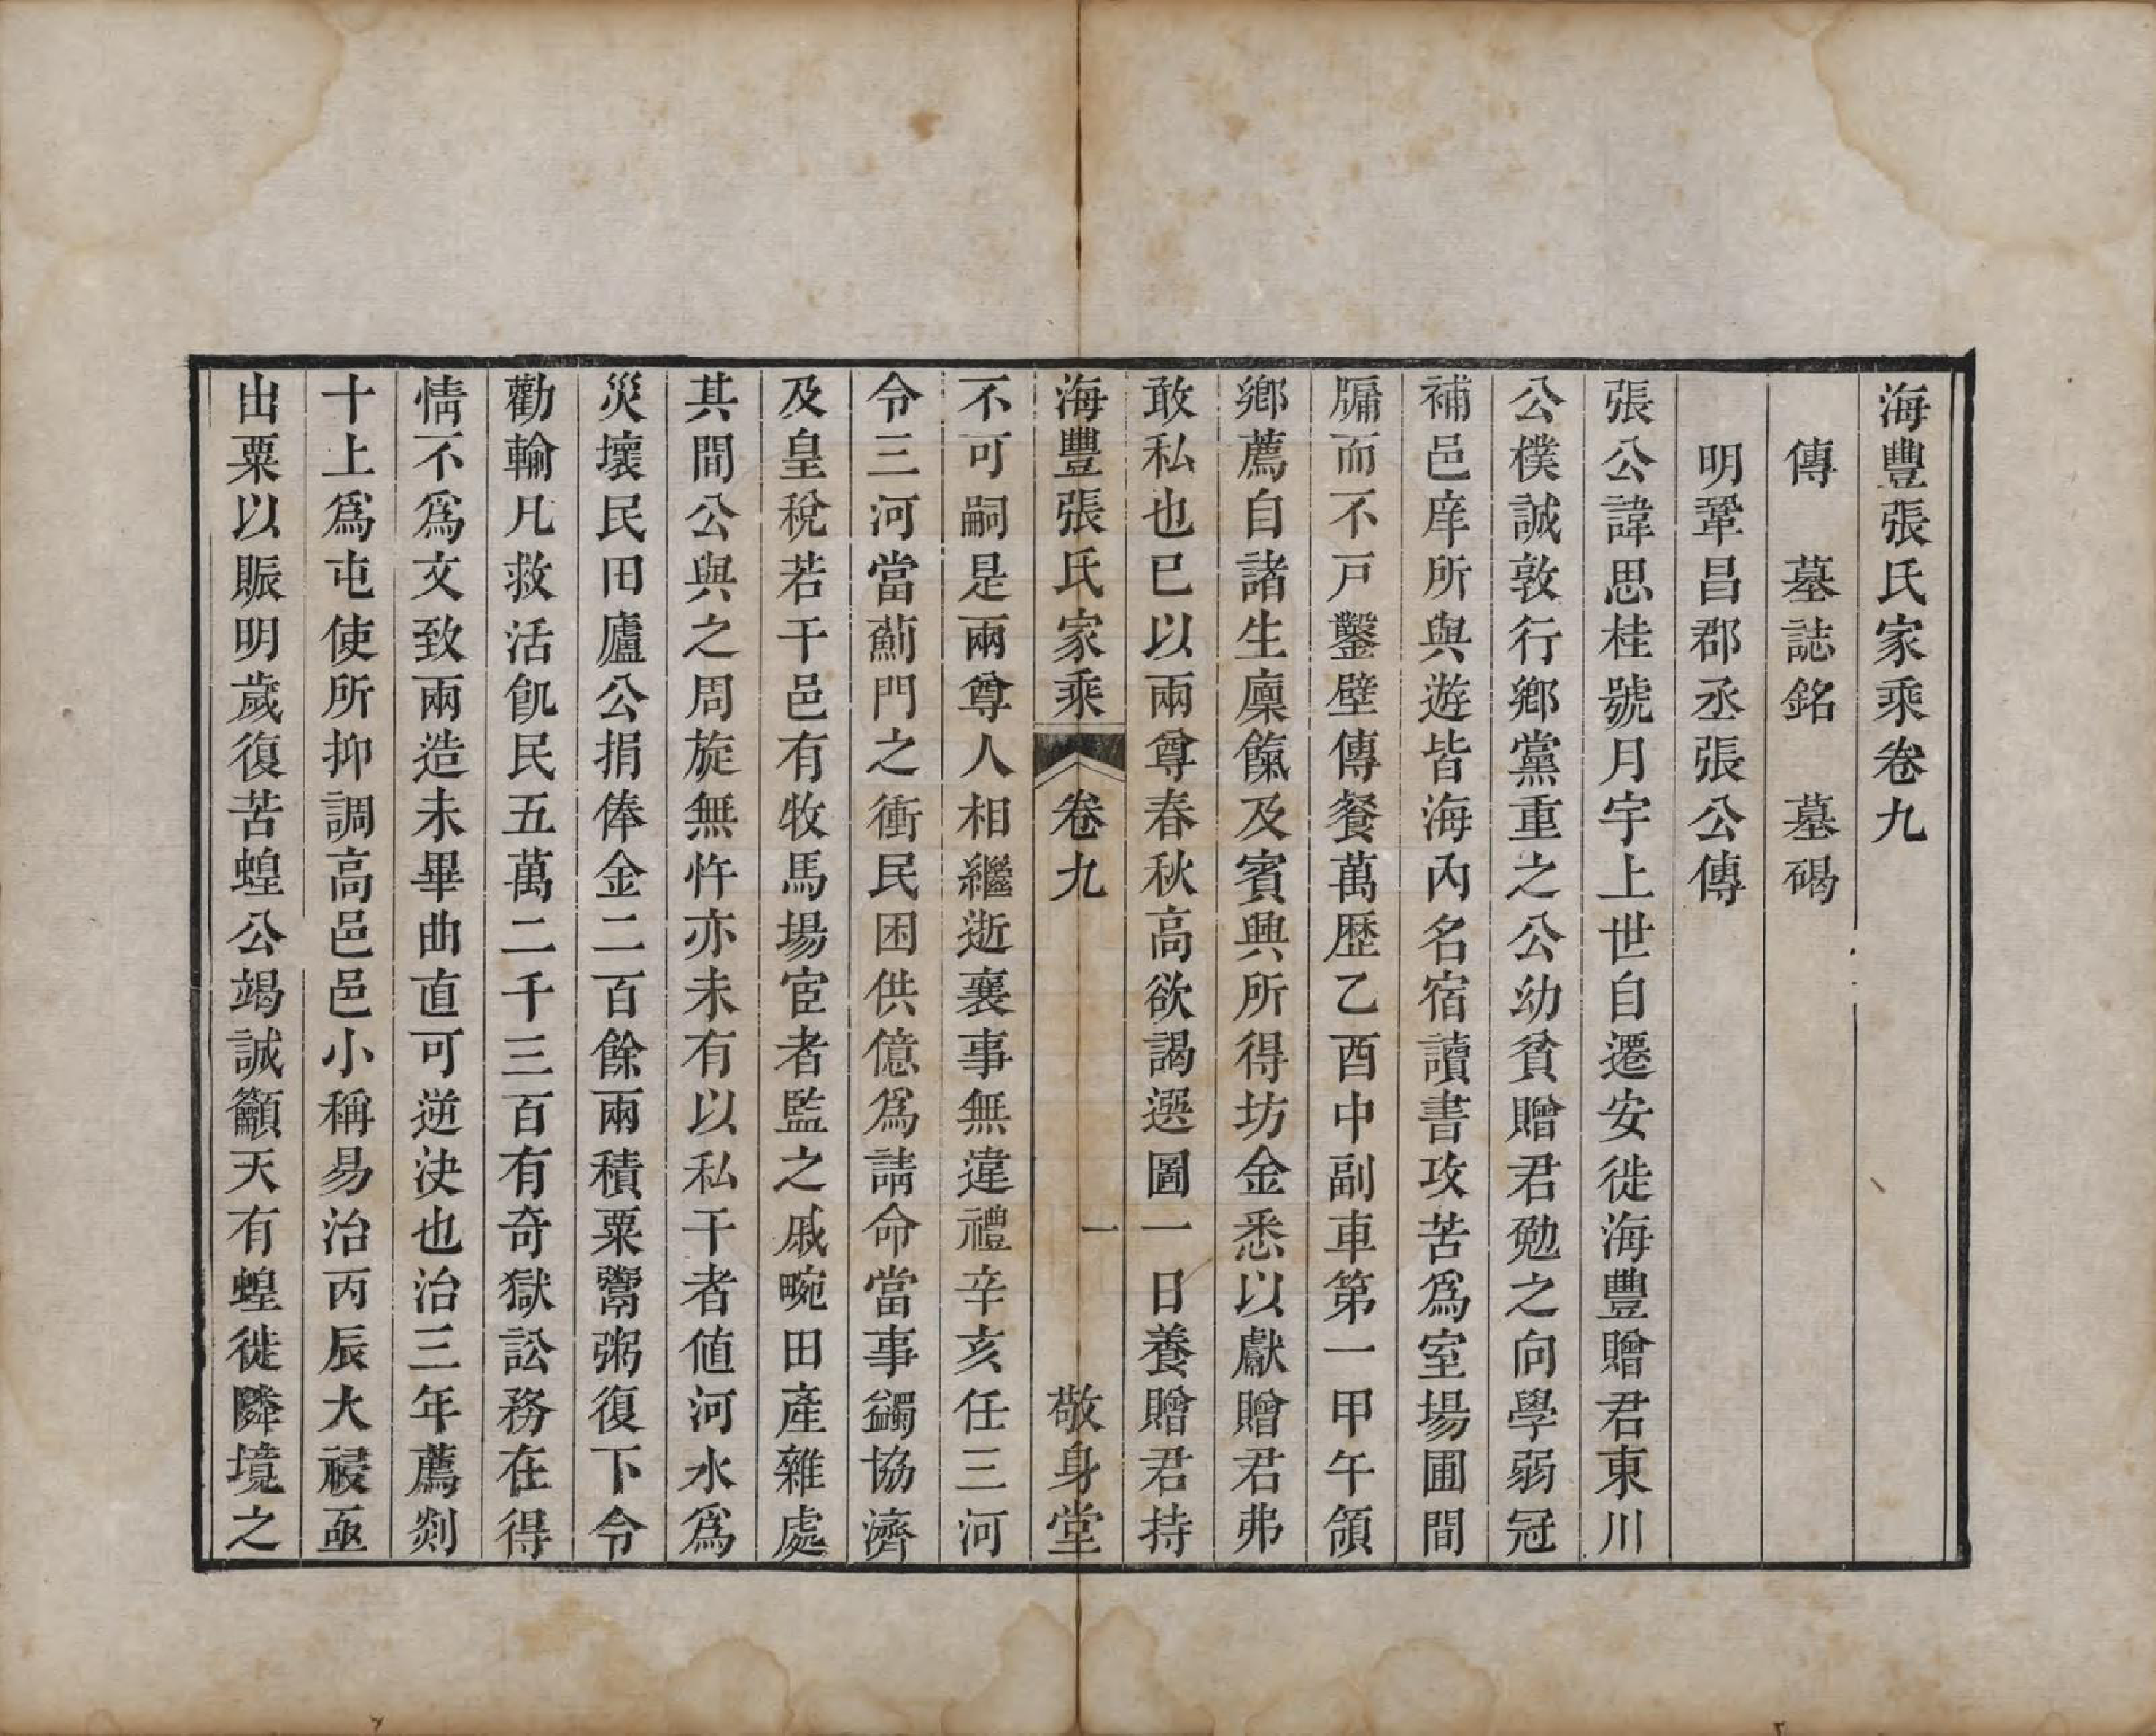 海豐張氏家乘卷九
傳　墓誌銘　墓碣
明鞏昌郡丞張公傳
張公諱思桂號月宇上世自遷安徙海豐贈君東川
公樸誠敦行鄉黨重之公幼貧贈君勉之向學弱冠
補邑庠所與遊皆海內名宿讀書攻苦爲室場圃間
牖而不戸鑿壁傳餐萬歷乙酉中副車第一甲午領
鄉薦自諸生廩餼及賓興所得坊金悉以獻贈君弗
敢私也已以兩尊春秋高欲謁選圖一日養贈君持
海豐張氏家乘　卷九　一　敬身堂
不可嗣是兩尊人相繼逝襄事無違禮辛亥任三河
令三河當薊門之衝民困供億爲請命當事蠲協濟
及皇稅若干邑有牧馬場宦者監之戚畹田產雜處
其間公與之周旋無忤亦未有以私干者值河水爲
災壞民田廬公捐俸金二百餘兩積粟鬻粥復下令
勸輸凡救活飢民五萬二千三百有奇獄訟務在得
情不爲文致兩造未畢曲直可逆決也治三年薦剡
十上爲屯使所抑調高邑邑小稱易治丙辰大祲亟
出粟以賑明歲復苦蝗公竭誠籲天有蝗徙隣境之